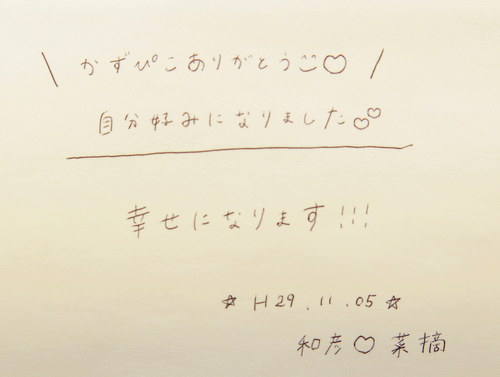 \ かずぴこありがとう♡ /
自分好みになりました♡♡
幸せになります!!!
☆ H29.11.05 ☆
和彦♡菜摘